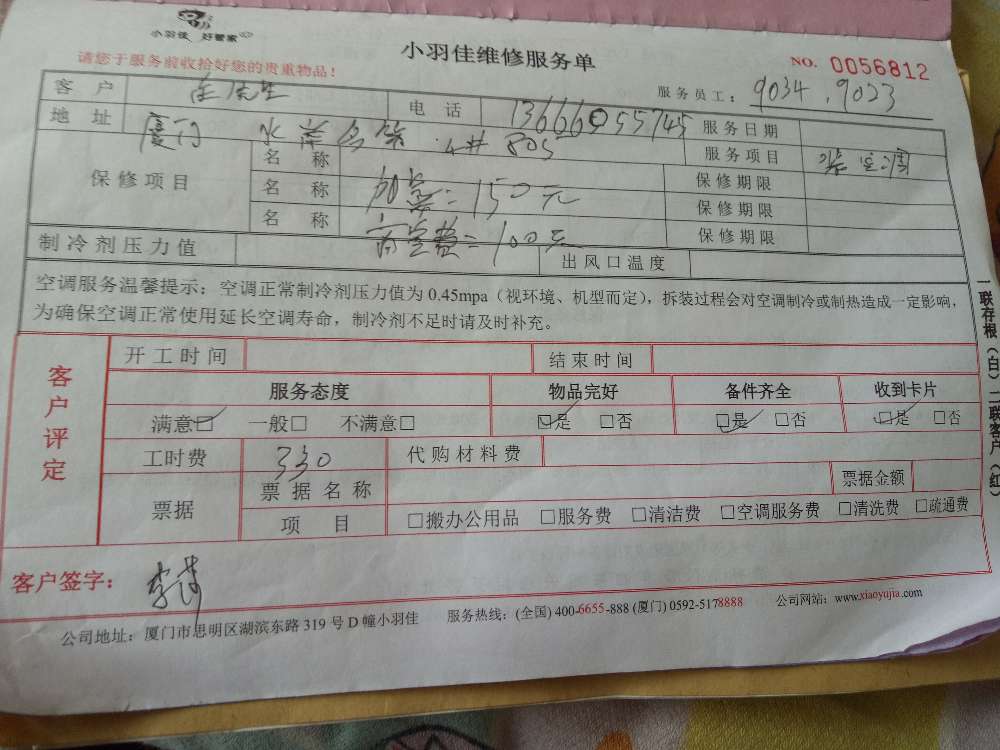 小羽佳 好管家
小羽佳维修服务单
请您于服务前收拾好您的贵重物品！
NO. 0056812
服务员工： 9034 . 9023
客 户 先生 电 话 13666055745 服务日期
地 址 厦门 4# 805 服务项目 装空调
保修项目 名 称 保修期限
名 称 加氨=150元 保修期限
名 称 高空费=100元 保修期限
制冷剂压力值 出风口温度
空调服务温馨提示：空调正常制冷剂压力值为 0.45mpa（视环境、机型而定），拆装过程会对空调制冷或制热造成一定影响，
为确保空调正常使用延长空调寿命，制冷剂不足时请及时补充。
客户评定
开工时间 结束时间
服务态度 物品完好 备件齐全 收到卡片
满意☑ 一般□ 不满意□ ☑是 □否 ☑是 □否 ☑是 □否
工时费 330 代购材料费
票据 票据名称 票据金额
项 目 □搬办公用品 □服务费 □清洁费 □空调服务费 □清洗费 □疏通费
客户签字：
公司地址：厦门市思明区湖滨东路 319 号 D 幢小羽佳 服务热线：(全国) 400-6655-888 (厦门) 0592-5178888 公司网站：www.xiaoyujia.com
一联存根（白）二联客户（红）